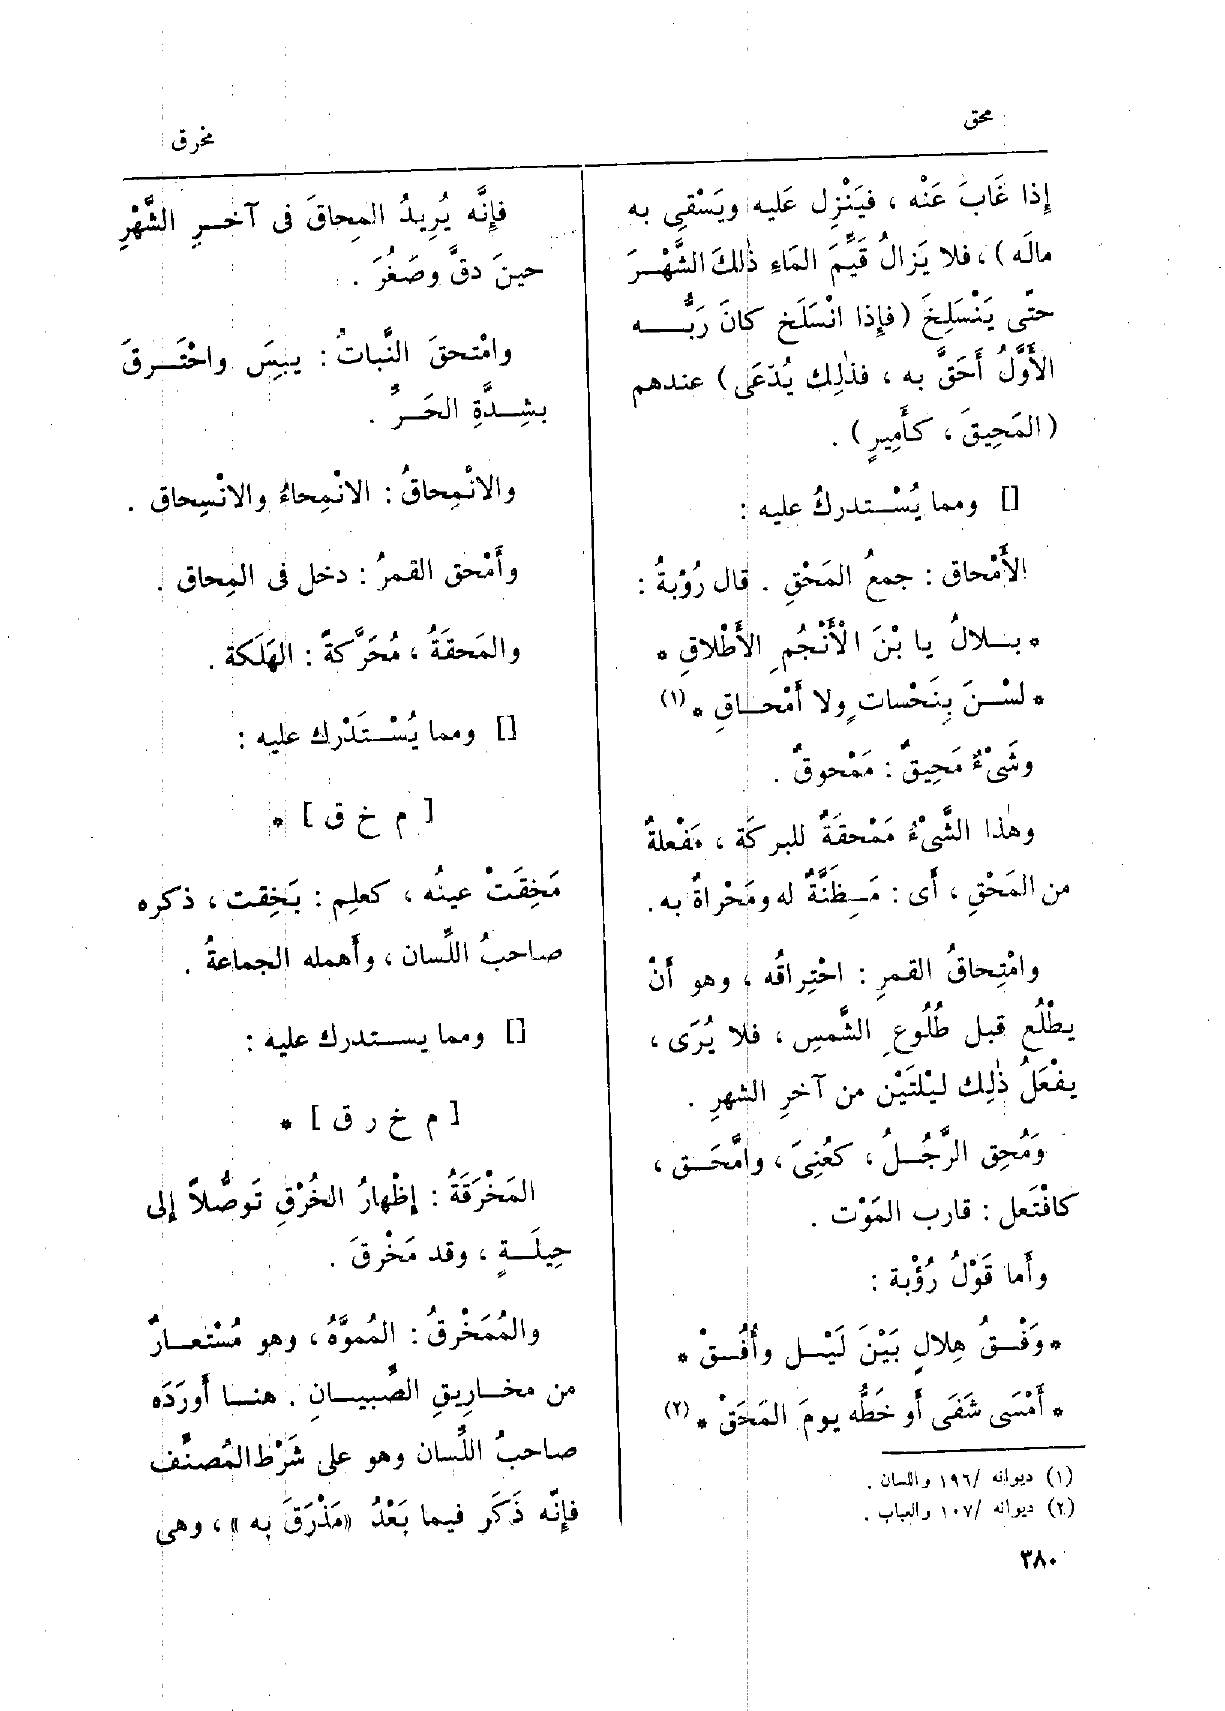 محق
مخرق
إذا غَابَ عَنْه ، فيَنْزِل عَليه ويَسْقِي به
مالَه) ، فلا يَزالُ قَيِّمَ المَاءِ ذٰلكَ الشَّهْـرَ
حتّى يَنْسَلِخَ (فإِذا انْسَلَخ كانَ رَبُّـــه
الأَوَّلُ أَحَقَّ به ، فذٰلِك يُدّعَى) عندهم
(المَحِيقَ ، كأَمِيرٍ) .
[] ومما يُسْـتدركُ عليه :
الأَمْحاق : جمعُ المَحْقِ . قال رُؤْبةُ :
* بـــلالُ يا بْنَ الْأَنْجُمِ الأَطْلاقِ *
* لسْـنَ بِنَحْساتٍ ولا أَمْحــاقِ * (١)
وشَىْءٌ مَحِيقٌ : مَمْحوقٌ .
وهٰذا الشَّىْءُ مَمْحقَةٌ للبركَة ، مَفْعلةٌ
من المَحْقِ ، أَى : مَـظِنَّةٌ له ومَحْراةٌ به .
وامْتِحاقُ القمرِ : احْتِراقُه ، وهو أَنْ
يطْلُع قبل طُلُوعِ الشَّمسِ ، فلا يُرَى ،
يفْعَلُ ذٰلِك ليْلتَيْن من آخرِ الشهرِ .
وَمُحِق الرَّجُــلُ ، كعُنِىَ ، وامَّحَــق ،
كافْتَعل : قارب المَوْت .
وأَما قَوْلُ رُؤْبة :
* وَفْــقُ هِلالٍ بَيْنَ لَيْــل وأُفُــقْ *
* أَمْسَى شَفَى أَو خَطُّه يومَ المَحَقْ * (٢)
(١) ديوانه /١٩٦ واللسان .
(٢) ديوانه /١٠٧ والعباب .
٣٨٠
فإِنَّه يُرِيدُ المِحاقَ فى آخــرِ الشَّهْرِ
حينَ دقَّ وصَغُرَ .
وامْتحقَ النَّباتُ : يبِسَ واحْتَــرقَ
بشِــدَّةِ الحَــرِّ .
والانْمِحاقُ : الانْمِحاءُ والانْسِحاق .
وأَمْحق القمرُ : دخل فى المِحاق .
والمَحقَةُ ، مُحَرَّكةً : الهَلَكة .
[] ومما يُسْـتَدْرك عليه :
[ م خ ق ] *
مَخِقَتْ عينُه ، كعلِم : بَخِقت ، ذكره
صاحبُ اللِّسان ، وأَهمله الجماعةُ .
[] ومما يســتدرك عليه :
[ م خ ر ق ] *
المَخْرَقَةُ : إِظْهارُ الخُرْقِ تَوصُّلاً إلى
حِيلَــةٍ ، وقد مَخْرقَ .
والمُمَخْرِقُ : المُموَّهُ ، وهو مُسْتعــارٌ
من مخــارِيقِ الصِّبيــانِ . هنــا أَورَدَه
صاحبُ اللِّسان وهو على شَرْط المُصنِّف
فإِنّه ذَكَر فيما بَعْدُ «مَذْرَقَ به» ، وهى